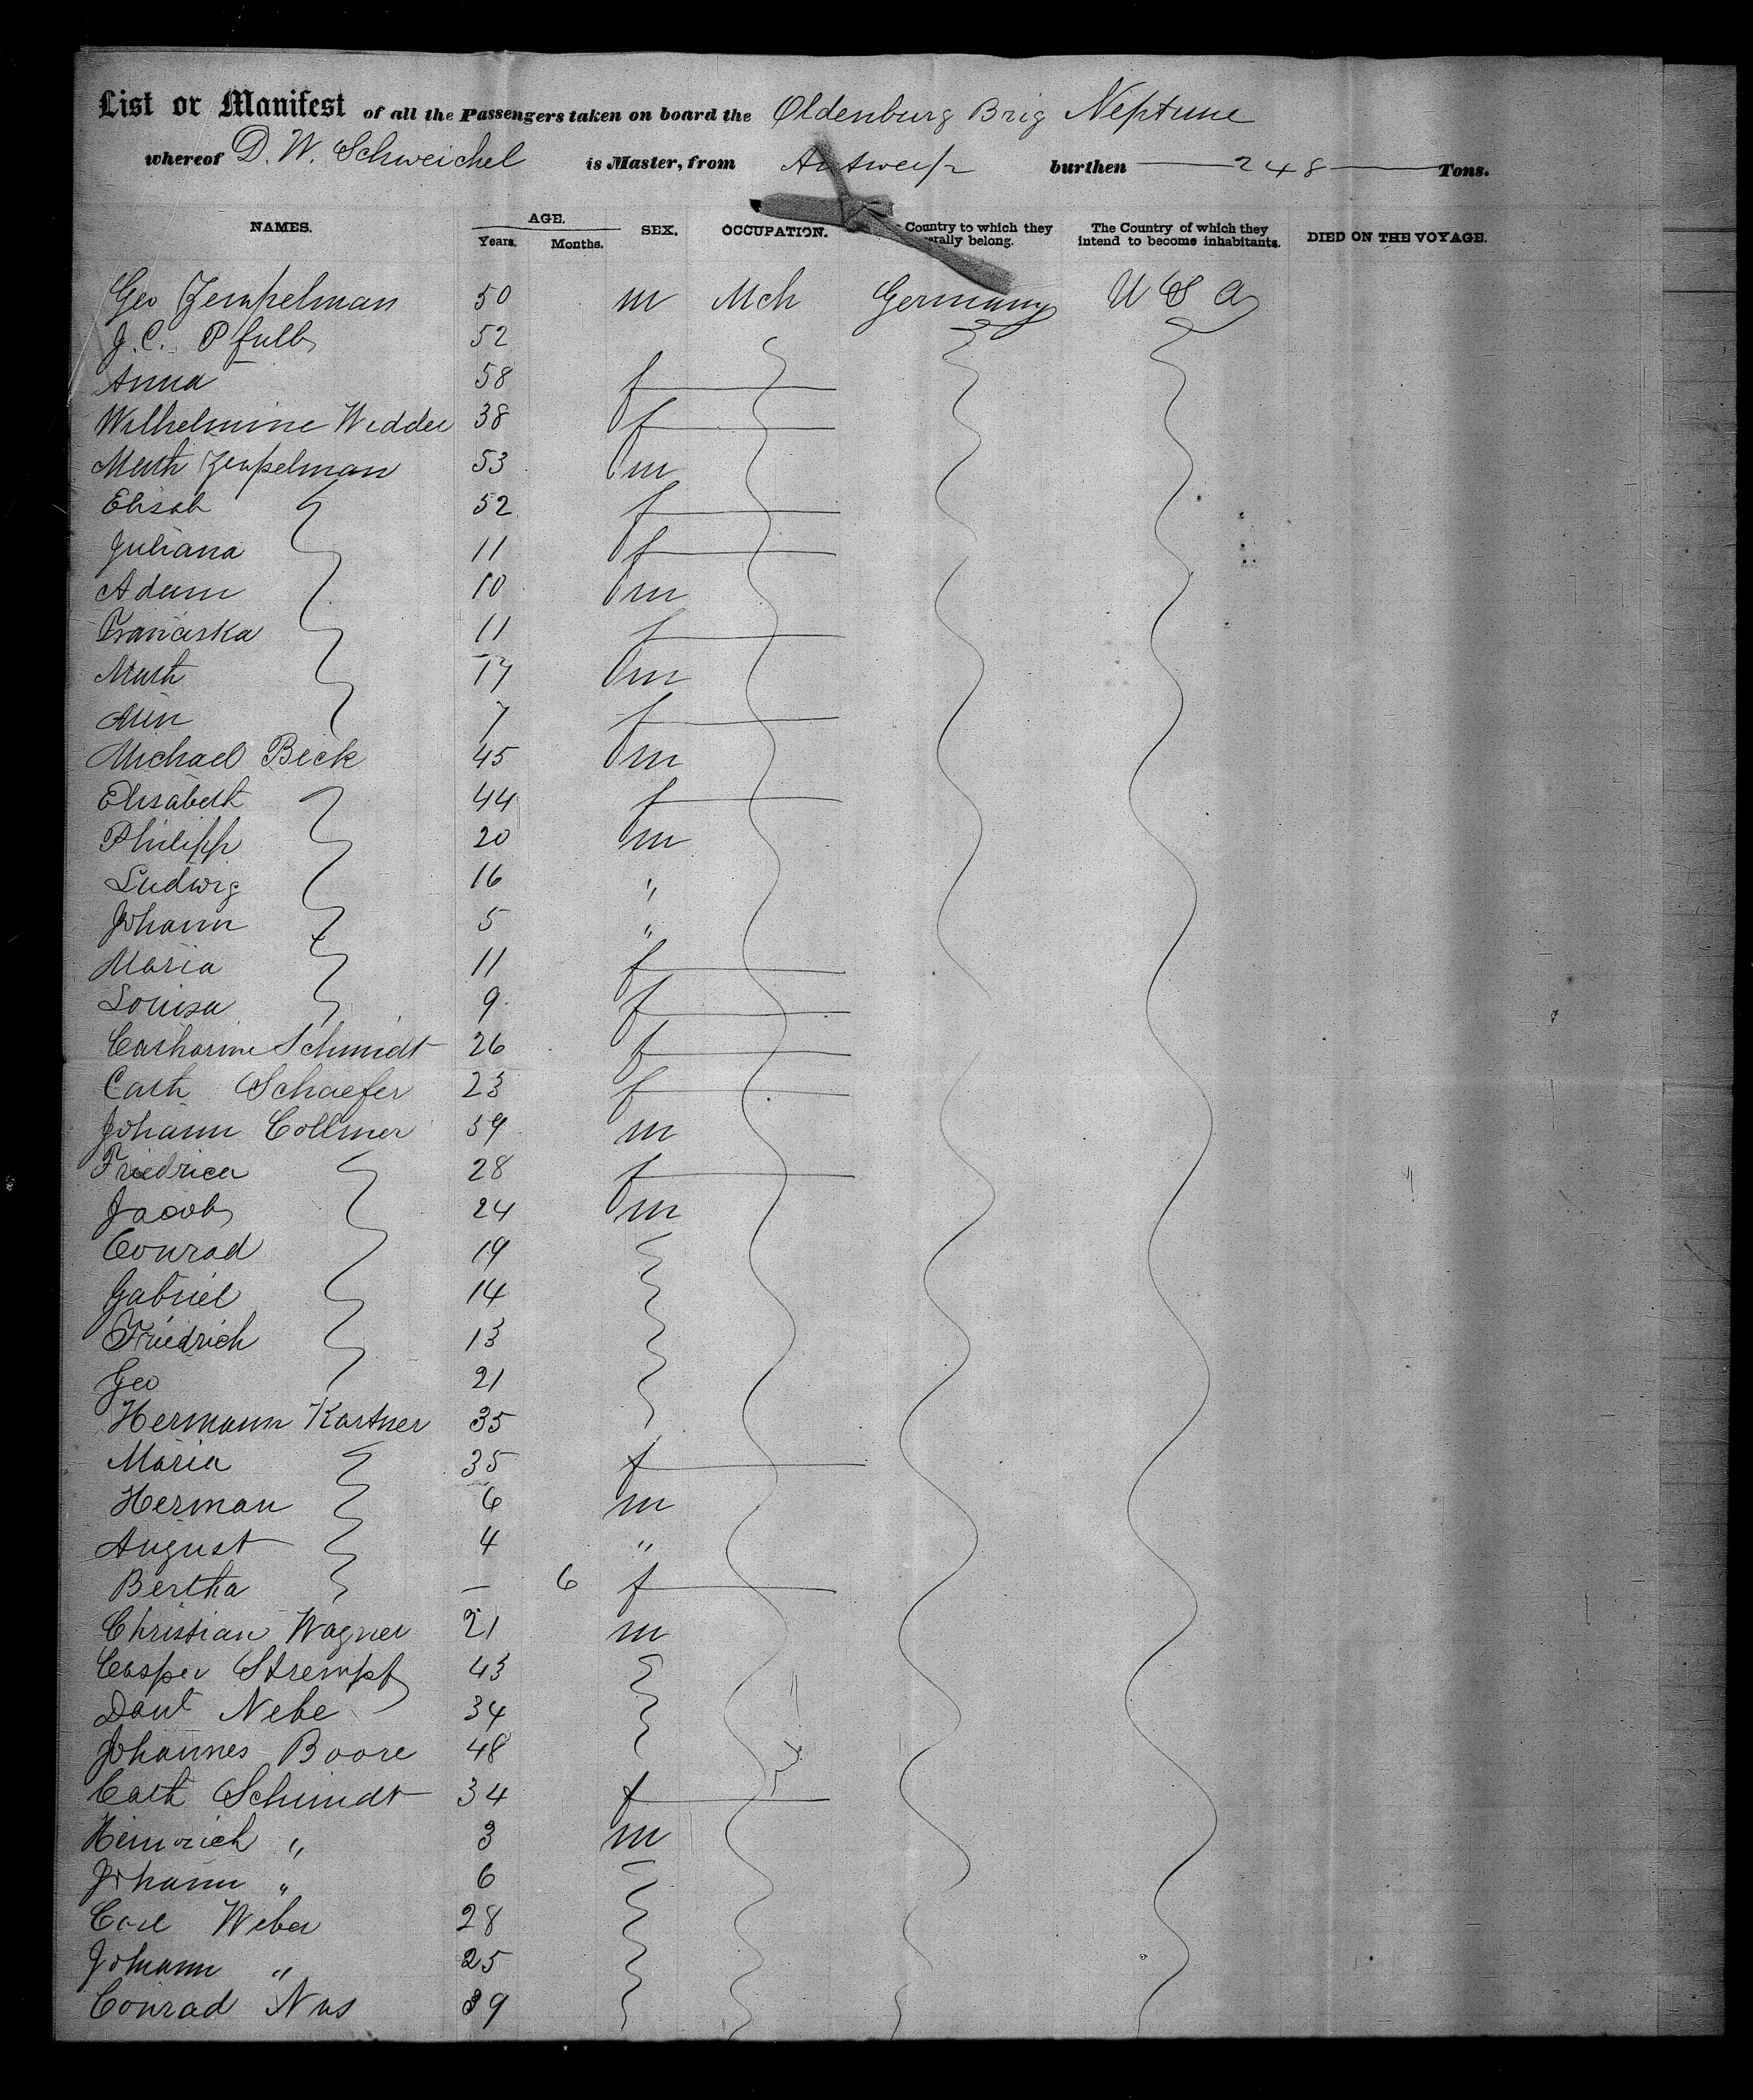 List or Manifest of all the Passengers taken on board the Oldenburg Brig Neptune
whereof D. W. Schweichel is Master, from Antwerp burthen 248 Tons.
NAMES. AGE. SEX. OCCUPATION. Country to which they The Country of which they DIED ON THE VOYAGE.
Years. Months. belong. intend to become inhabitants.
Geo Zempelman 50 m Mch Germany U S A
J. C. Pfulb 52
Anna 58 f
Wilhelmine Wedder 38 f
Math Zempelman 53 m
Elisab 52 f
Juliana 11 f
Adam 10 m
Franciska 11 f
Math 17 m
7 f
Michael Beck 45 m
Elisabeth 44 f
Philipp 20 m
Ludwig 16 "
Johann 5 "
Maria 11 f
Louisa 9 f
Catharine Schmidt 26 f
Cath Schaefer 23 f
Johann Collmer 59 m
Friedrica 28 f
Jacob 24 m
Conrad 19
Gabriel 14
Friedrich 13
Geo 21
Hermann Kastner 35
Maria 35 f
Herman 6 m
August 4 "
Bertha — 6 f
Christian Wagner 21 m
Casper Strempf 43
Danl Nebe 34
Johannes Boore 48
Cath Schmidt 34 f
Heinrich " 3 m
Johann " 6
Carl Weber 28
Johann " 25
Conrad Nus 39